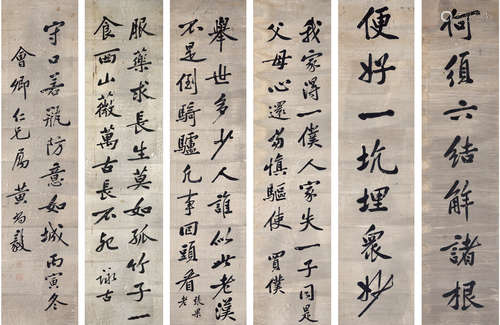 何須六結解諸根
便好一坑埋眾妙
我家得一僕人家失一子同是
父母心還勿慎驅使 買僕
舉世多少人誰似此老漢
不是倒騎驢凡事回頭看 張果老
服藥求長生莫如孤竹子一
食西山薇萬古長不死 詠古
守口若瓶防意如城丙寅冬
會卿仁兄屬 黃毅